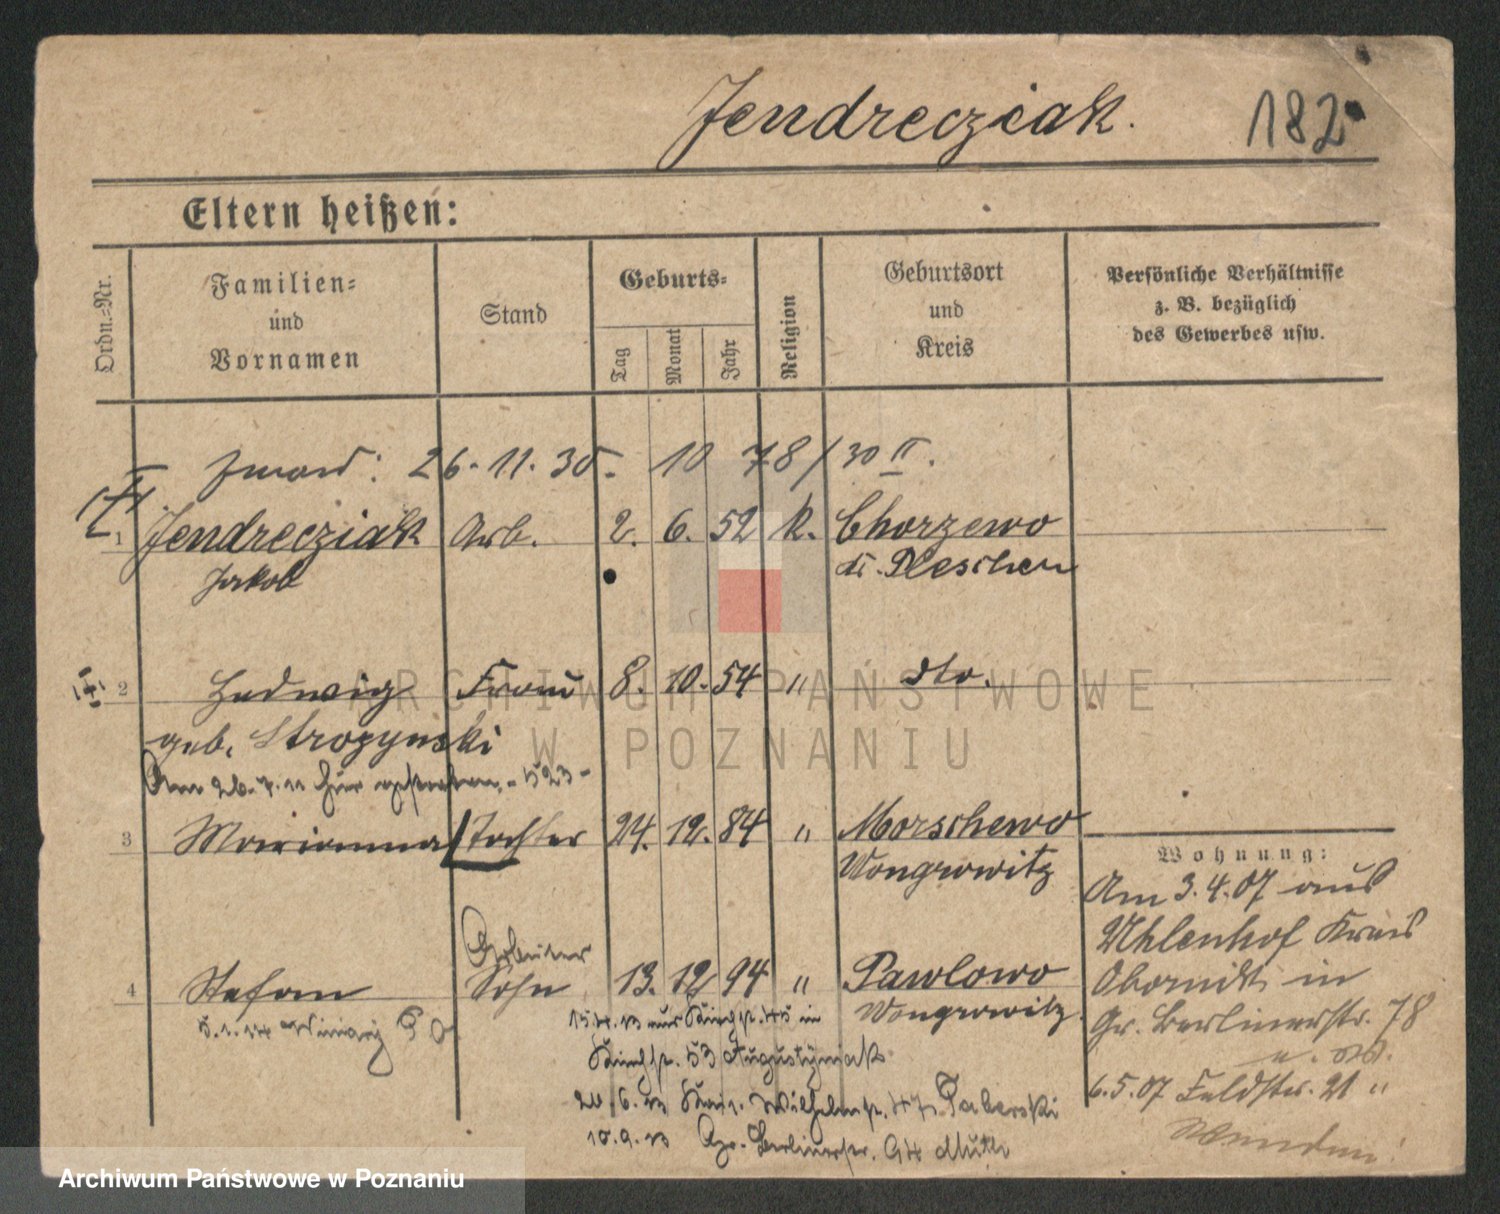 Jendrecziak. 182
Eltern heißen:
Ordn.-Nr.
Familien-
und
Vornamen
Stand
Geburts-
Tag
Monat
Jahr
Religion
Geburtsort
und
Kreis
Persönliche Verhältnisse
z. B. bezüglich
des Gewerbes usw.
26. 11. 30. 10 78/30 II.
1 Jendrecziak Arb. 2. 6. 52 K. Chorzewo
Jakob
Kr. Pleschen
2 Hedwig Frau 8. 10. 54 " dto.
geb. Strozynski
Am 26. 7. 11 hier gestorben - 523 -
3 Marianna Tochter 24. 12. 84 " Morschewo
Wongrowitz
Wohnung:
Am 3.4.07 aus
Uhlenhof Kreis
Obornik in
Gr. Berlinerstr. 78
6.5.07 Feldstr. 21 "
Wenden!
Arbeiter
4 Stefan Sohn 13. 12 94 " Pawlowo
Wongrowitz
5.1.14 Winiary
15.4.13 aus Ringstr. 45 in
Ringstr. 53 Augustyniak
20.6.13 Wilhelmstr. 47 Taberski
10.9.13 Gr. Berlinerstr. 94 Muth
ARCHIWUM PAŃSTWOWE
W POZNANIU
Archiwum Państwowe w Poznaniu